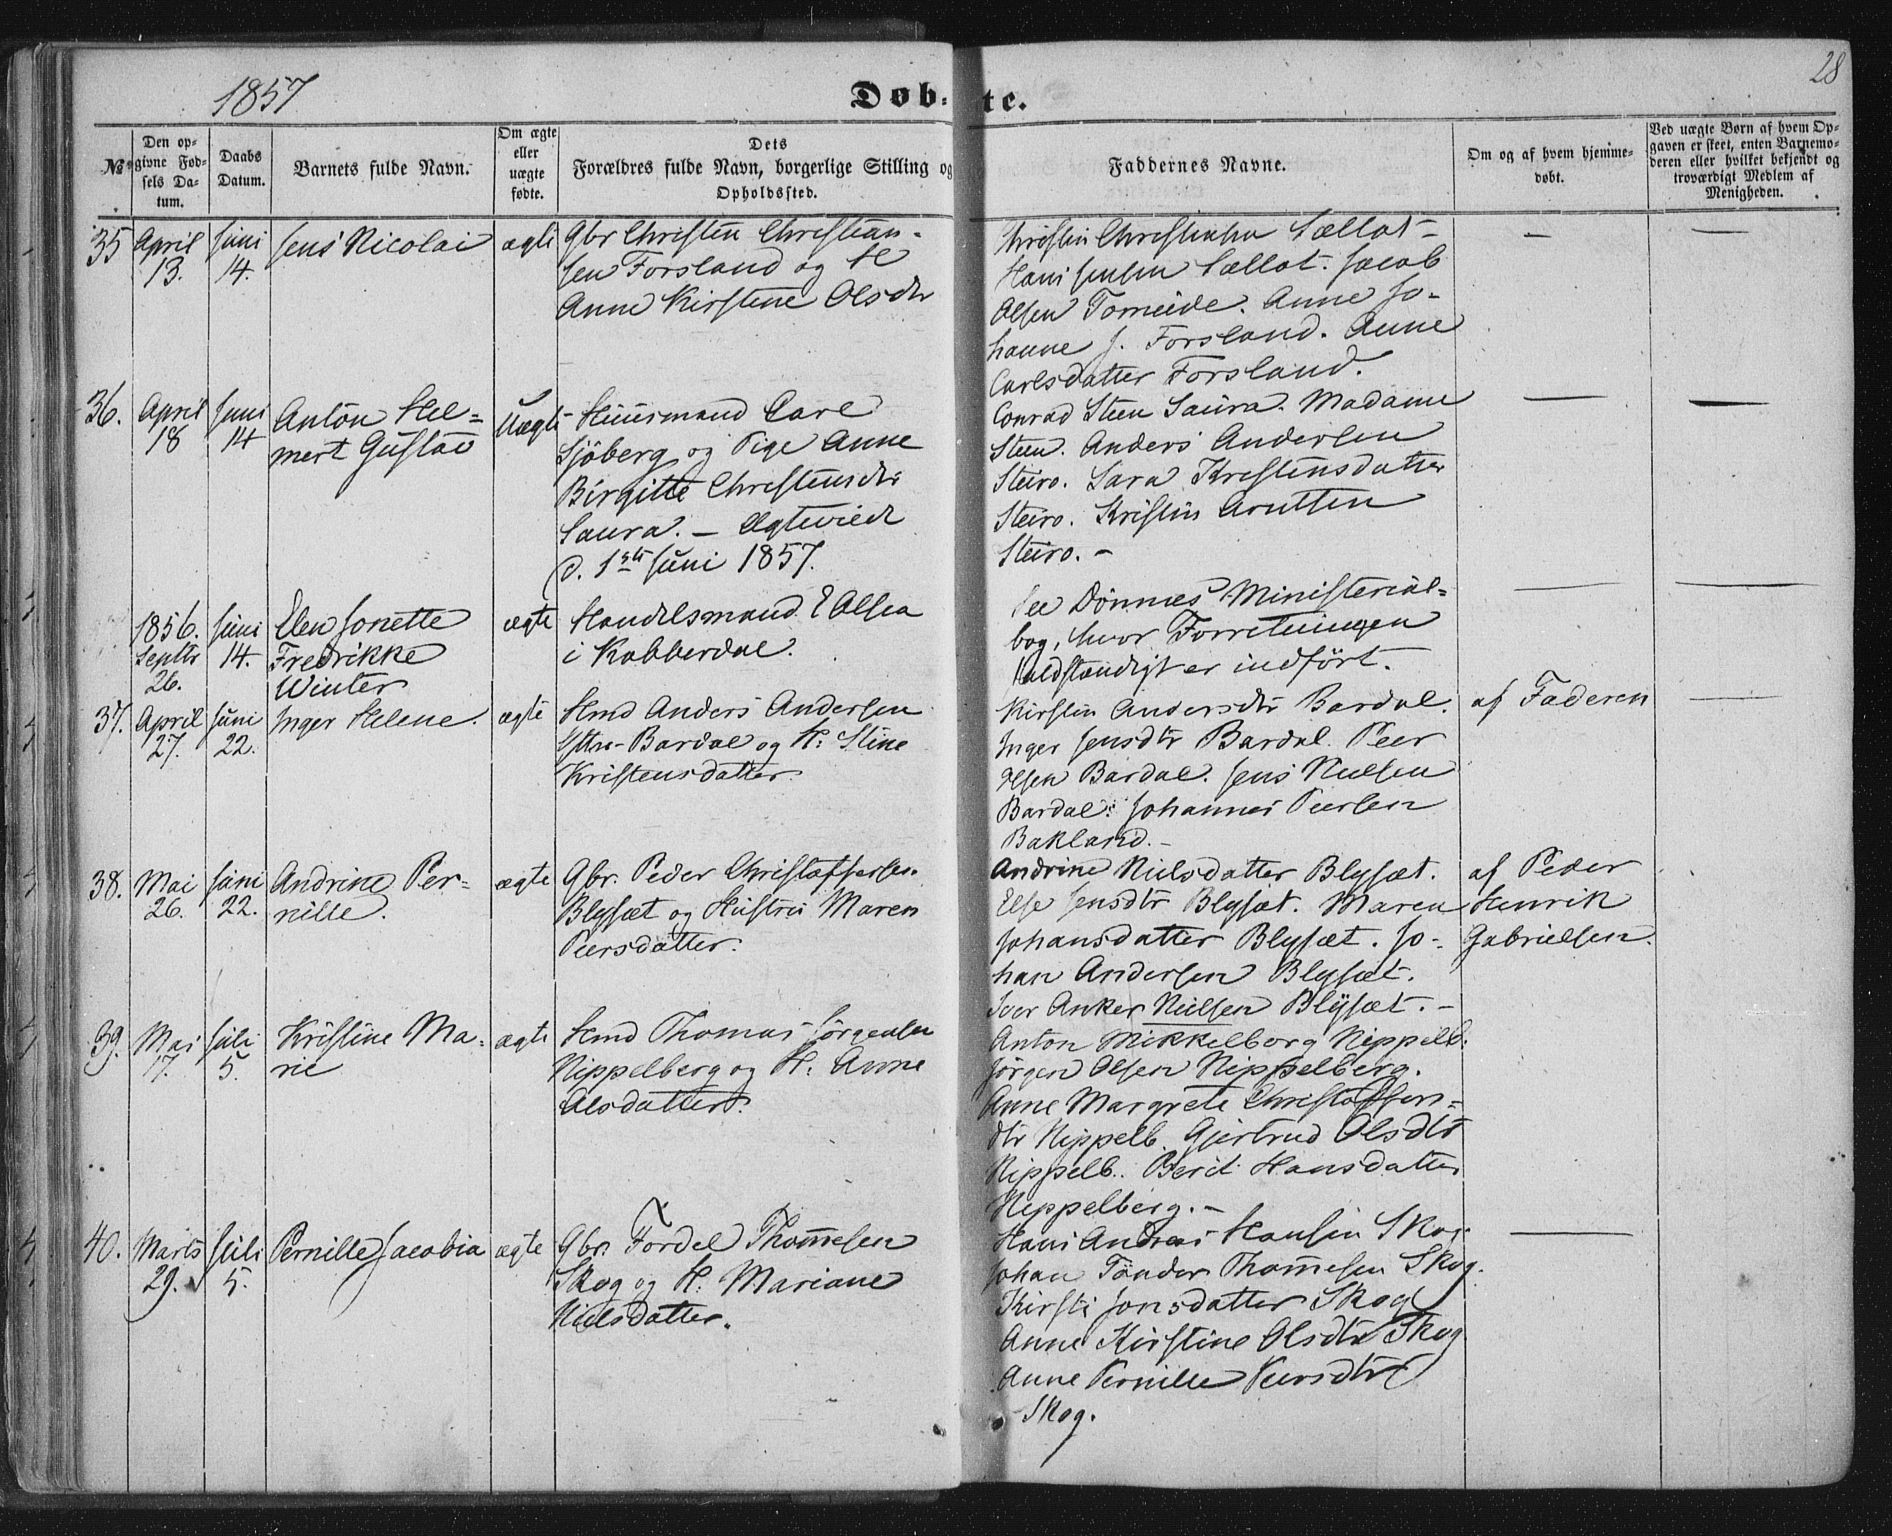 1857
Døb-te.
28
No
Den op-
givne Fød-
sels Da-
tum.
Daabs
Datum.
Barnets fulde Navn.
Om ægte
eller
uægte
fødte.
Dets
Forældres fulde Navn, borgerlige Stilling og
Opholdssted.
Faddernes Navne.
Om og af hvem hjemme-
døbt.
Ved uægte Børn af hvem Op-
gaven er skeet, enten Barnemo-
deren eller hvilket bekjendt og
troværdigt Medlem af
Menigheden.
35 April 13. Juni 14. Jens Nicolai ægte
Gbr Christen Christian-
sen Forsland og H
Anne Kirstine Olsdtr
Christen Christensen Sællat-
Hans Jensen Sællat. Jacob
Olsen Forneide. Anne Jo-
hanne J. Forsland. Anne
Carlsdatter Forsland.
36. April 18 Juni 14 Anton Hel-
mert Gustav
Uægte
Huusmand Carl
Sjöberg og Pige Anne
Birgitte Christensdtr
Saura. - Ægteviede
d. 1ste Juni 1857.
Conrad Steen Saura. Madame
Steen. Anders Andersen
Steiro. Sara Kristensdatter
Steiro. Kristen Arntsen
Steiro. -
1856. Septbr 26. Juni 14. Elen Jonette
Fredrikke
Winter
ægte
Handelsmand E Olsen
i Kobberdal.
See Dønnes Ministerial-
bog, hvor Forretningen
fuldstændigt er indført.
37. April 27. Juni 22. Inger Helene. ægte
Hmd Anders Andersen
Yttre-Bardal og H: Stine
Kristensdatter
Kirsten Andersdtr Bardal.
Inger Jensdtr Bardal. Peer
Olsen Bardal. Jens Nielsen
Bardal. Johannes Peersen
Bakland. -
af Faderen
38. Mai 26. Juni 22. Andrine Per-
nille.
ægte
Gbr. Peder Christoffersen
Blysæt og Hustru Maren
Peersdatter.
Andrine Nielsdatter Blysæt.
Else Jensdtr Blysæt. Maren
Johansdatter Blysæt. Jo-
han Andersen Blysæt.
Iver Anker Nielsen Blysæt. -
af Peder
Henrik
Gabrielsen.
39. Mai 17. Juli 5. Kristine Ma-
rie
ægte
Hmd Thomas Jørgensen
Nippelberg og H: Anne
Olsdatter.
Anton Mikkelborg Nippelb.
Jørgen Olsen Nippelberg.
Anne Margrete Christoffers-
dtr Nippelb. Gjertrud Olsdtr
Nippelb. Berit Hansdatter
Nippelberg. -
40. Marts 29. Juli 5. Pernille Jacobia ægte
Gbr. Fordel Thomesen
Skog og H: Mariane
Nielsdatter.
Hans Andreas Hansen Skog
Johan Tönder Thomesen Skog.
Kirsti Jonsdatter Skog
Anne Kirstine Olsdtr Skog
Anne Pernille Peersdtr
Skog.